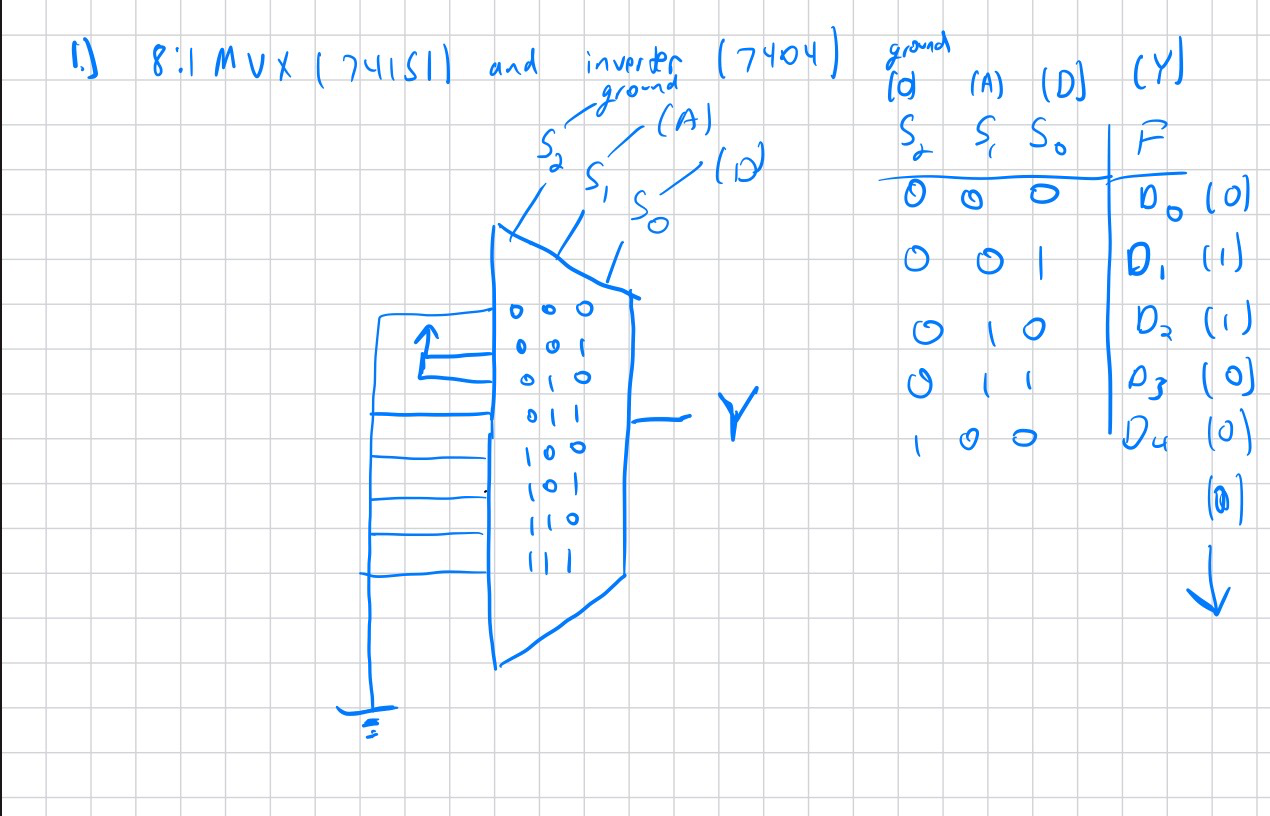 1.) 8:1 MUX (74151) and inverter (7404)
ground
S2 ground
S1 (A)
S0 (D)
0 0 0
0 0 1
0 1 0
0 1 1
1 0 0
1 0 1
1 1 0
1 1 1
Y
(A) (D) (Y)
S2 S1 S0 F
0 0 0 D0 (0)
0 0 1 D1 (1)
0 1 0 D2 (1)
0 1 1 D3 (0)
1 0 0 D4 (0)